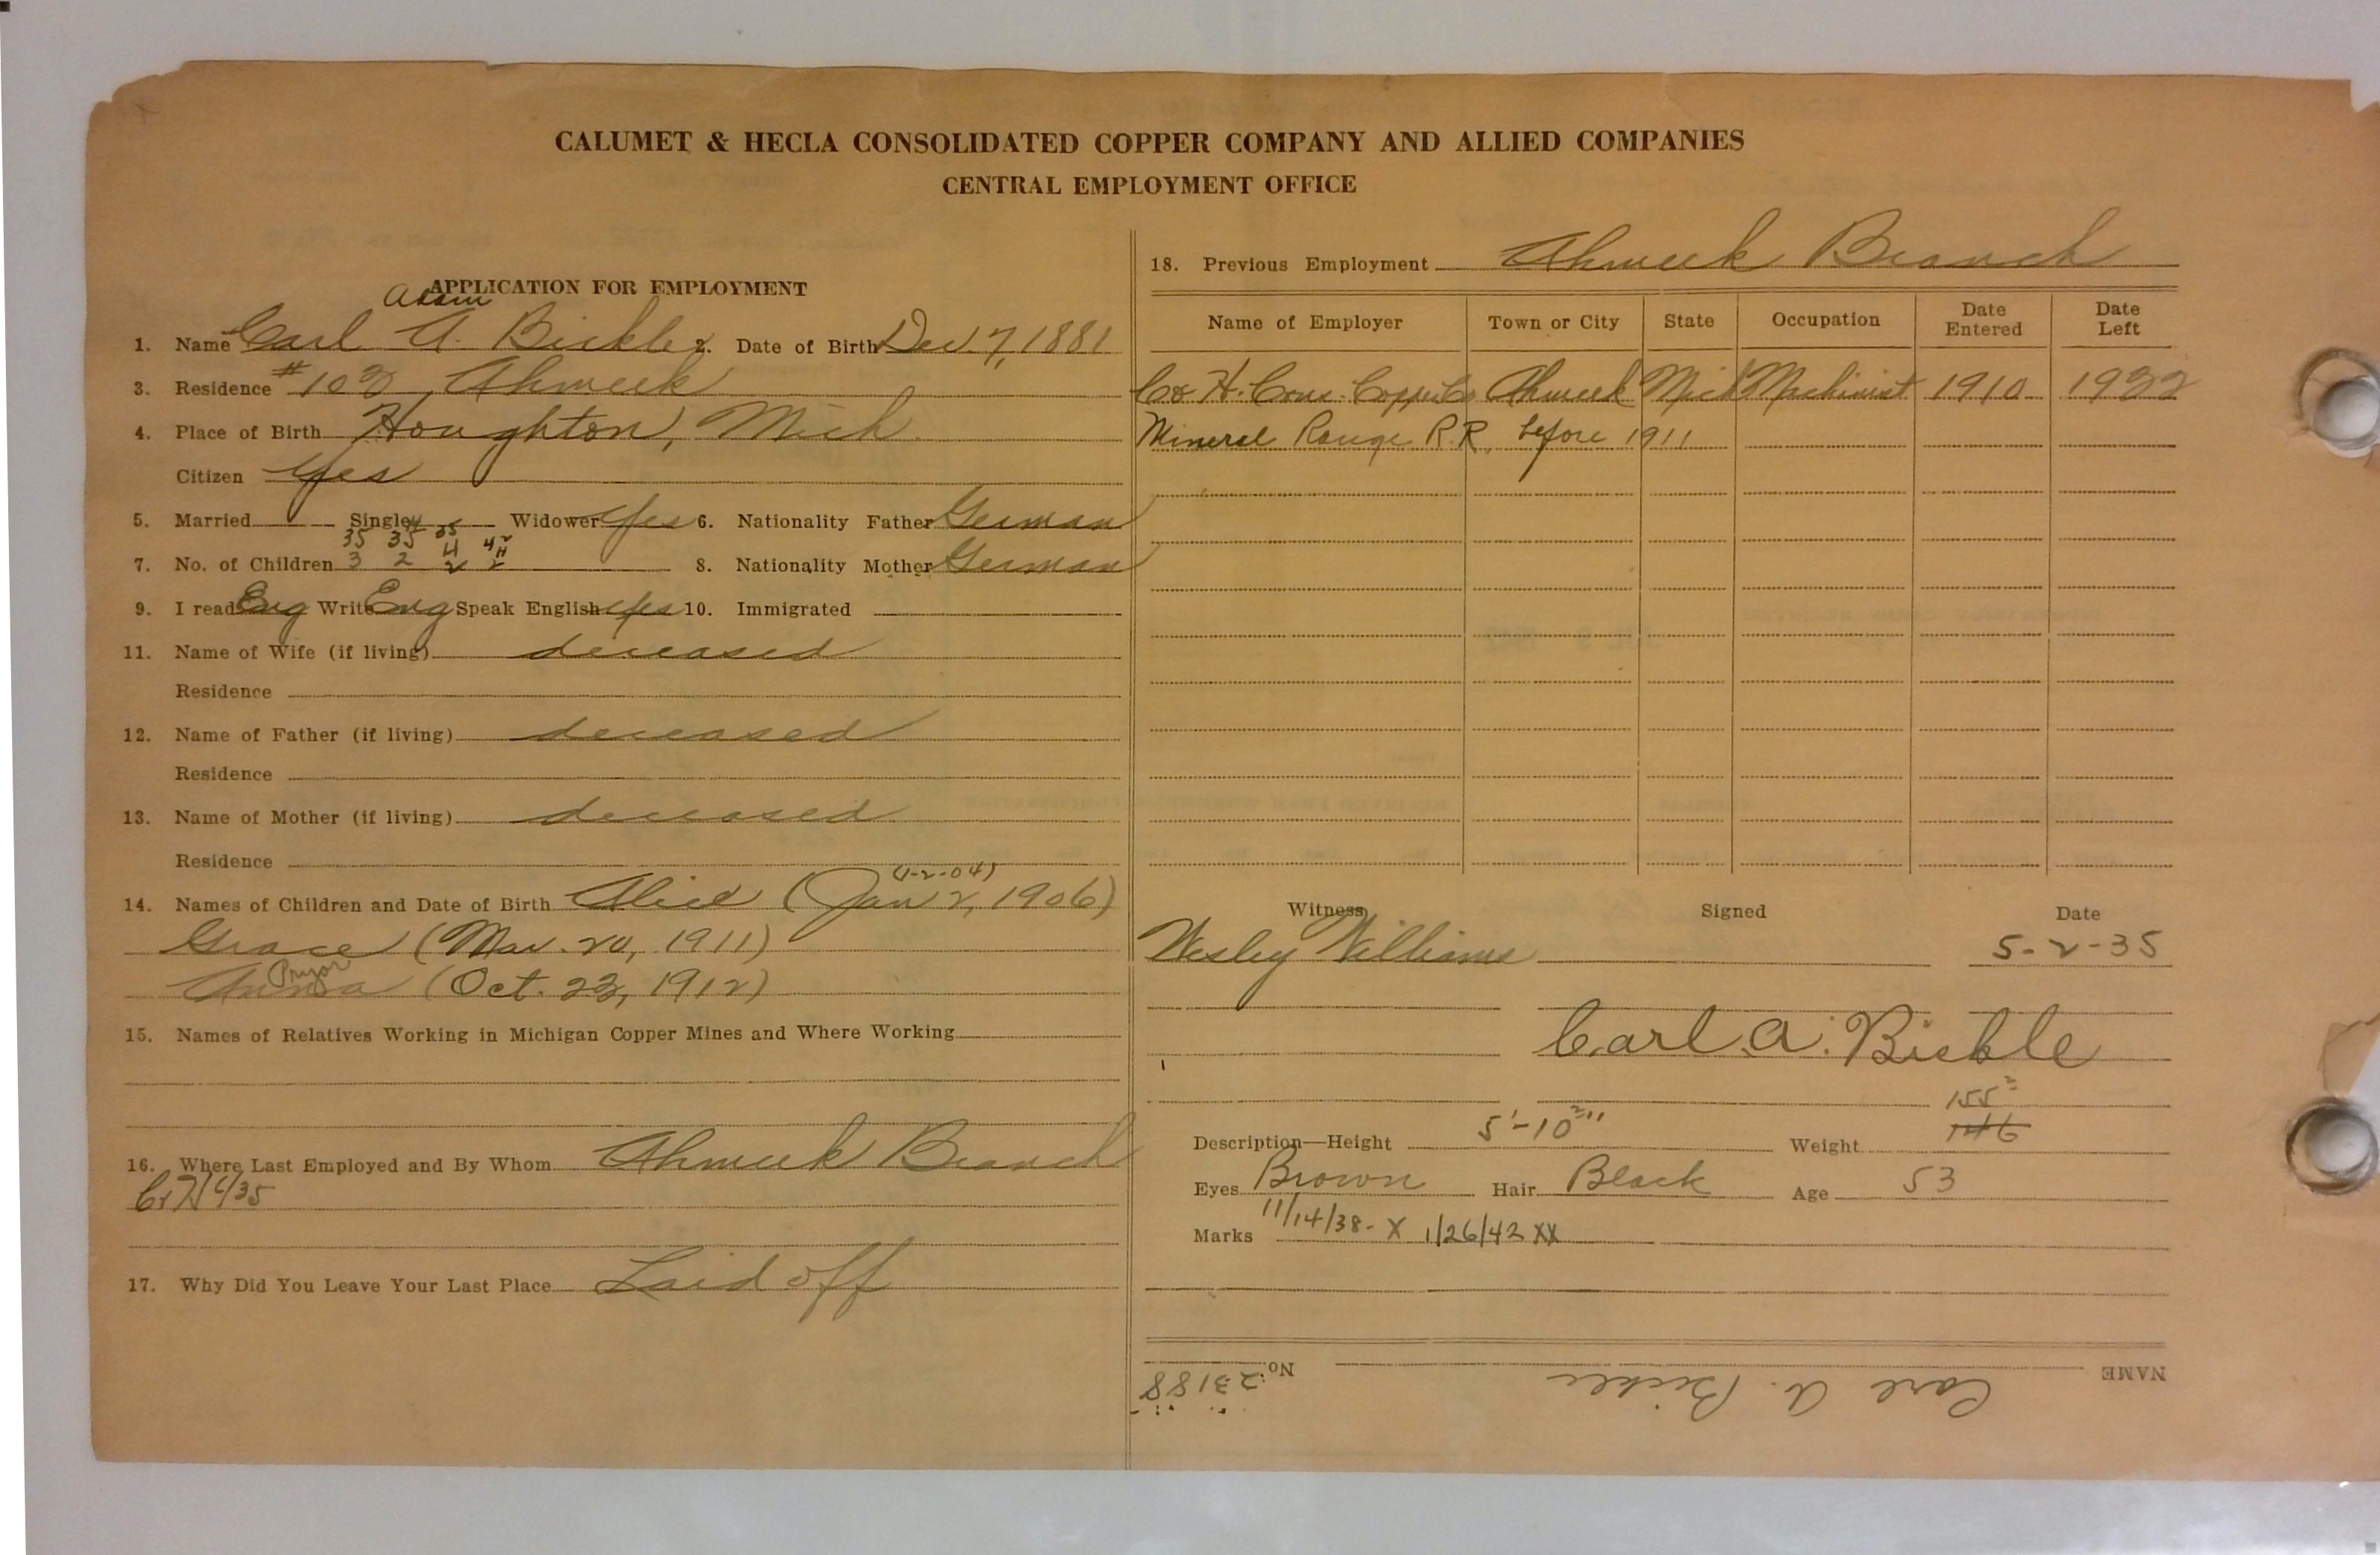 CALUMET & HECLA CONSOLIDATED COPPER COMPANY AND ALLIED COMPANIES
CENTRAL EMPLOYMENT OFFICE
APPLICATION FOR EMPLOYMENT
Adam
1. Name Carl A. Bickle 2. Date of Birth Dec. 7, 1881
3. Residence #102 Ahmeek
4. Place of Birth Houghton, Mich.
Citizen Yes
5. Married Single Widower Yes 6. Nationality Father German
35 35
7. No. of Children 3 2 2 2 8. Nationality Mother German
9. I read Eng Write Eng Speak English Yes 10. Immigrated
11. Name of Wife (if living) deceased
Residence
12. Name of Father (if living) deceased
Residence
13. Name of Mother (if living) deceased
Residence
(1-2-04)
14. Names of Children and Date of Birth Alice (Jan 2, 1906)
Grace (Mar. 20, 1911)
Pryor
Anna (Oct. 23, 1912)
15. Names of Relatives Working in Michigan Copper Mines and Where Working
16. Where Last Employed and By Whom Ahmeek Branch
17. Why Did You Leave Your Last Place Laid off
18. Previous Employment Ahmeek Branch
Name of Employer Town or City State Occupation Date Entered Date Left
C & H. Cons. Copper Co Ahmeek Mich Machinist 1910 1932
Mineral Range R.R. before 1911
Witness Signed Date
Wesley Williams 5-2-35
Carl A. Bickle
155²
Description—Height 5'-10²" Weight 146
Eyes Brown Hair Black Age 53
Marks 11/14/38- X 1/26/42 XX
NAME Carl A. Bickle No. 23188